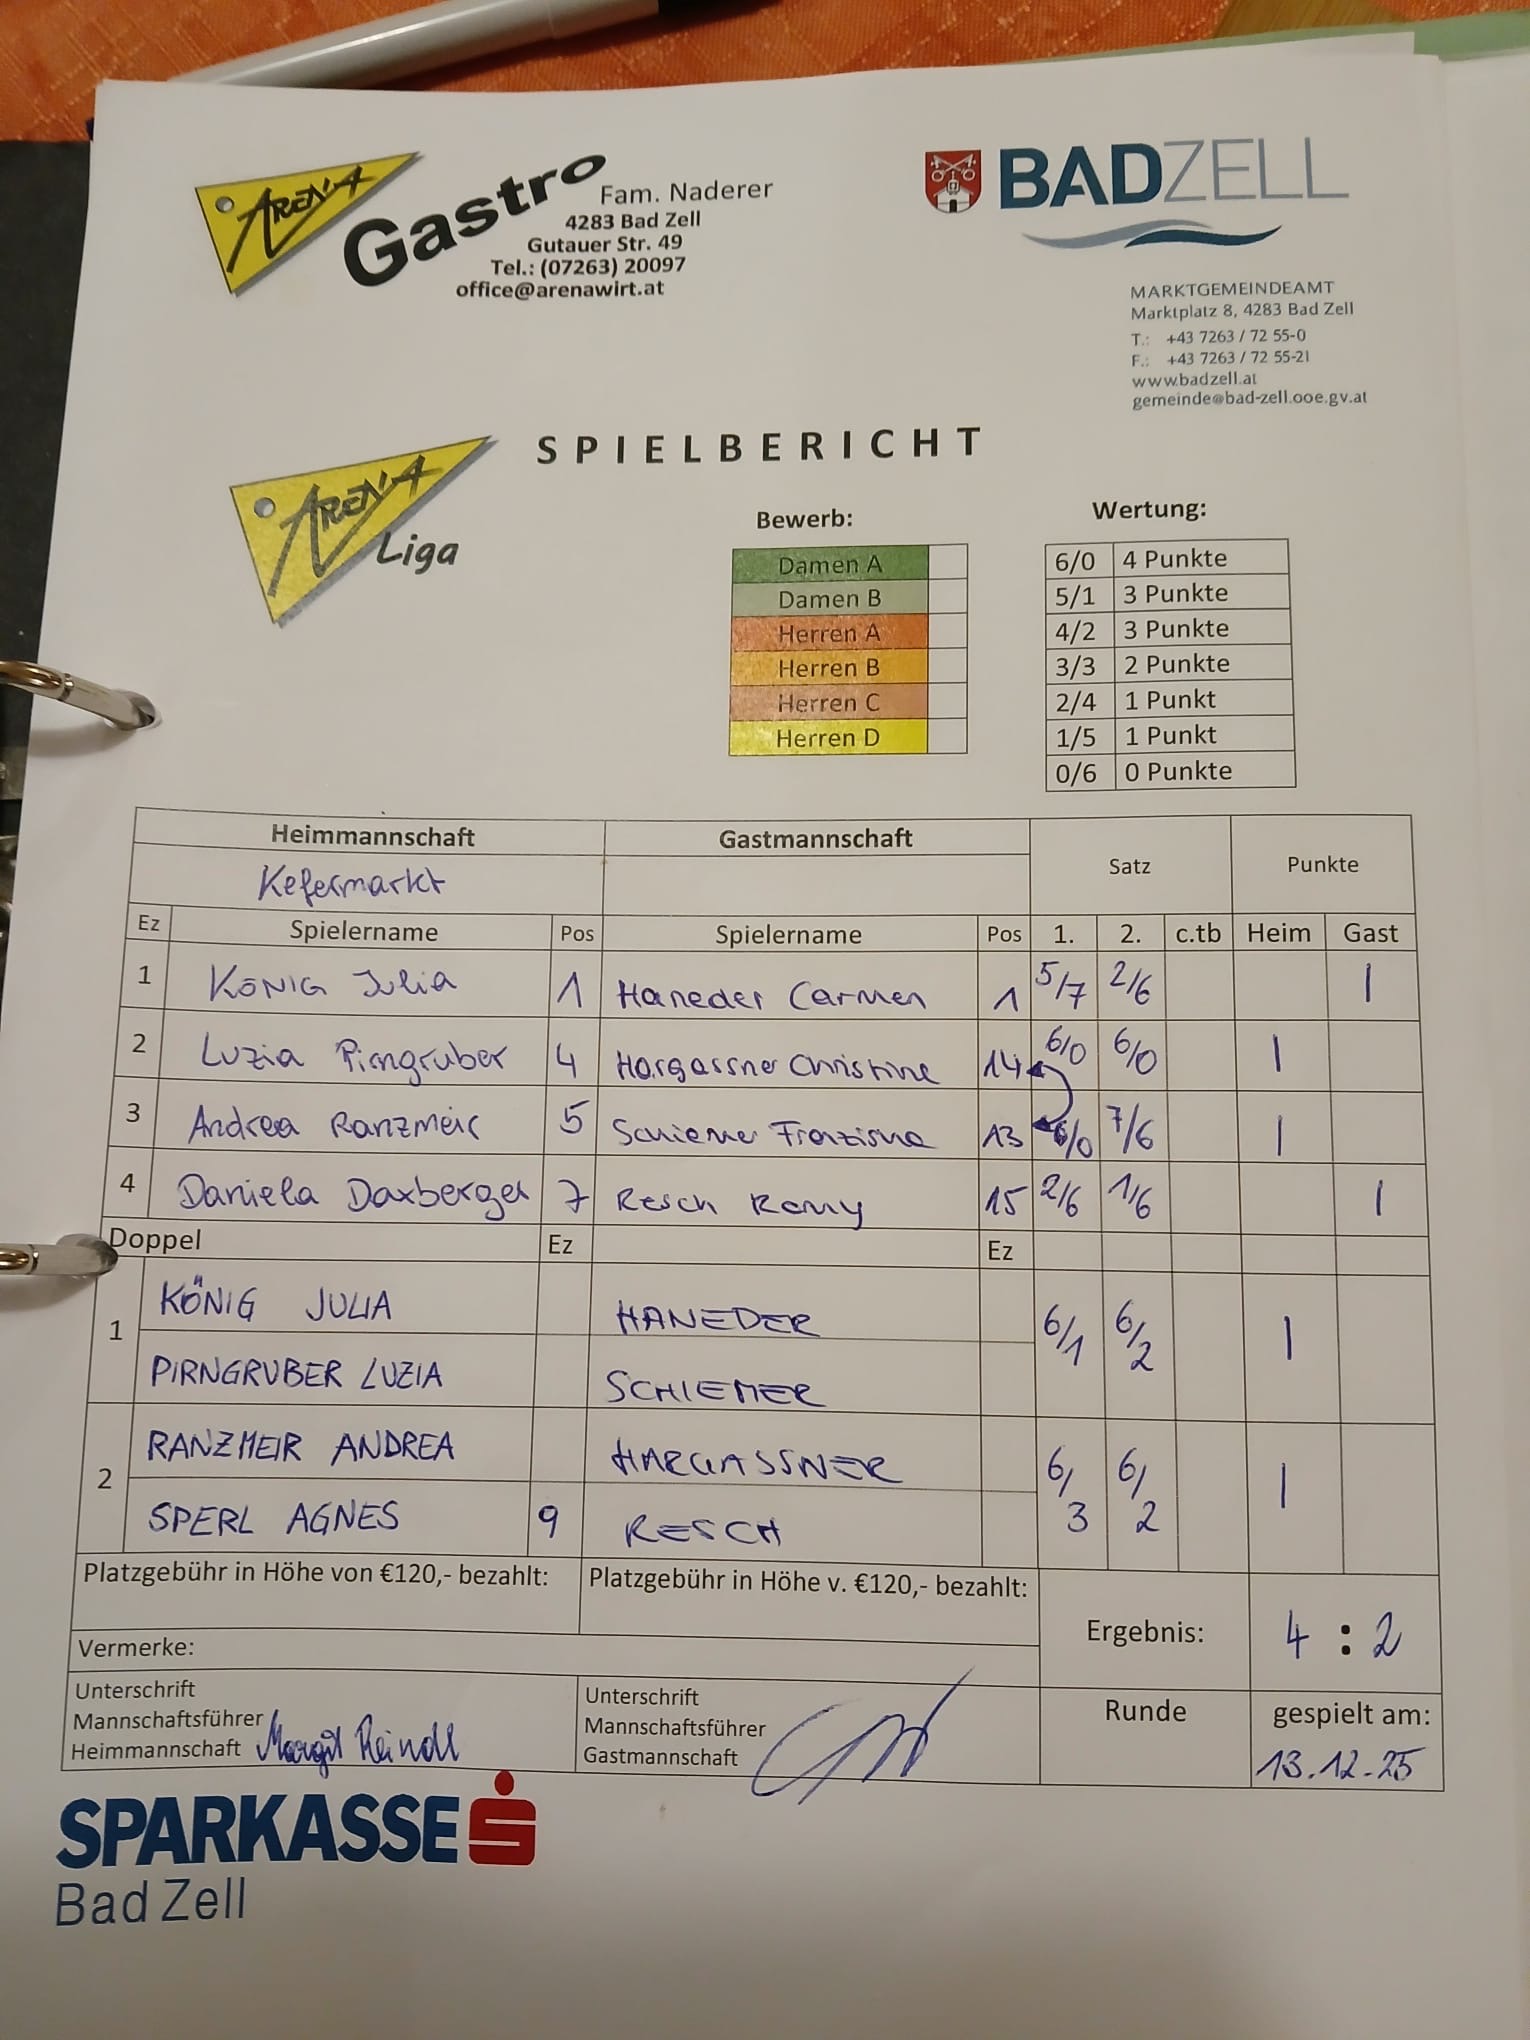 ARENA Gastro
Fam. Naderer
4283 Bad Zell
Gutauer Str. 49
Tel.: (07263) 20097
office@arenawirt.at
BADZELL
MARKTGEMEINDEAMT
Marktplatz 8, 4283 Bad Zell
T.: +43 7263 / 72 55-0
F.: +43 7263 / 72 55-21
www.badzell.at
gemeinde@bad-zell.ooe.gv.at
SPIELBERICHT
ARENA Liga
Bewerb:
Damen A
Damen B
Herren A
Herren B
Herren C
Herren D
Wertung:
6/0 4 Punkte
5/1 3 Punkte
4/2 3 Punkte
3/3 2 Punkte
2/4 1 Punkt
1/5 1 Punkt
0/6 0 Punkte
Heimmannschaft Gastmannschaft Satz Punkte
Kefermarkt
Ez Spielername Pos Spielername Pos 1. 2. c.tb Heim Gast
1 KÖNIG Julia 1 Haneder Carmen 1 5/7 2/6 1
2 Luzia Pirngruber 4 Hargassner Christine 14 6/0 6/0 1
3 Andrea Ranzmeir 5 Schiemer 13 6/0 7/6 1
4 Daniela Daxberger 7 Resch Romy 15 2/6 1/6 1
Doppel Ez Ez
1 KÖNIG JULIA HANEDER 6/1 6/2 1
PIRNGRUBER LUZIA SCHIEMER
2 RANZMEIR ANDREA HARGASSNER 6/3 6/2 1
SPERL AGNES 9 RESCH
Platzgebühr in Höhe von €120,- bezahlt: Platzgebühr in Höhe v. €120,- bezahlt:
Ergebnis: 4 : 2
Vermerke:
Unterschrift
Mannschaftsführer
Heimmannschaft Margit Reindl
Unterschrift
Mannschaftsführer
Gastmannschaft
Runde
gespielt am:
13.12.25
SPARKASSE
Bad Zell